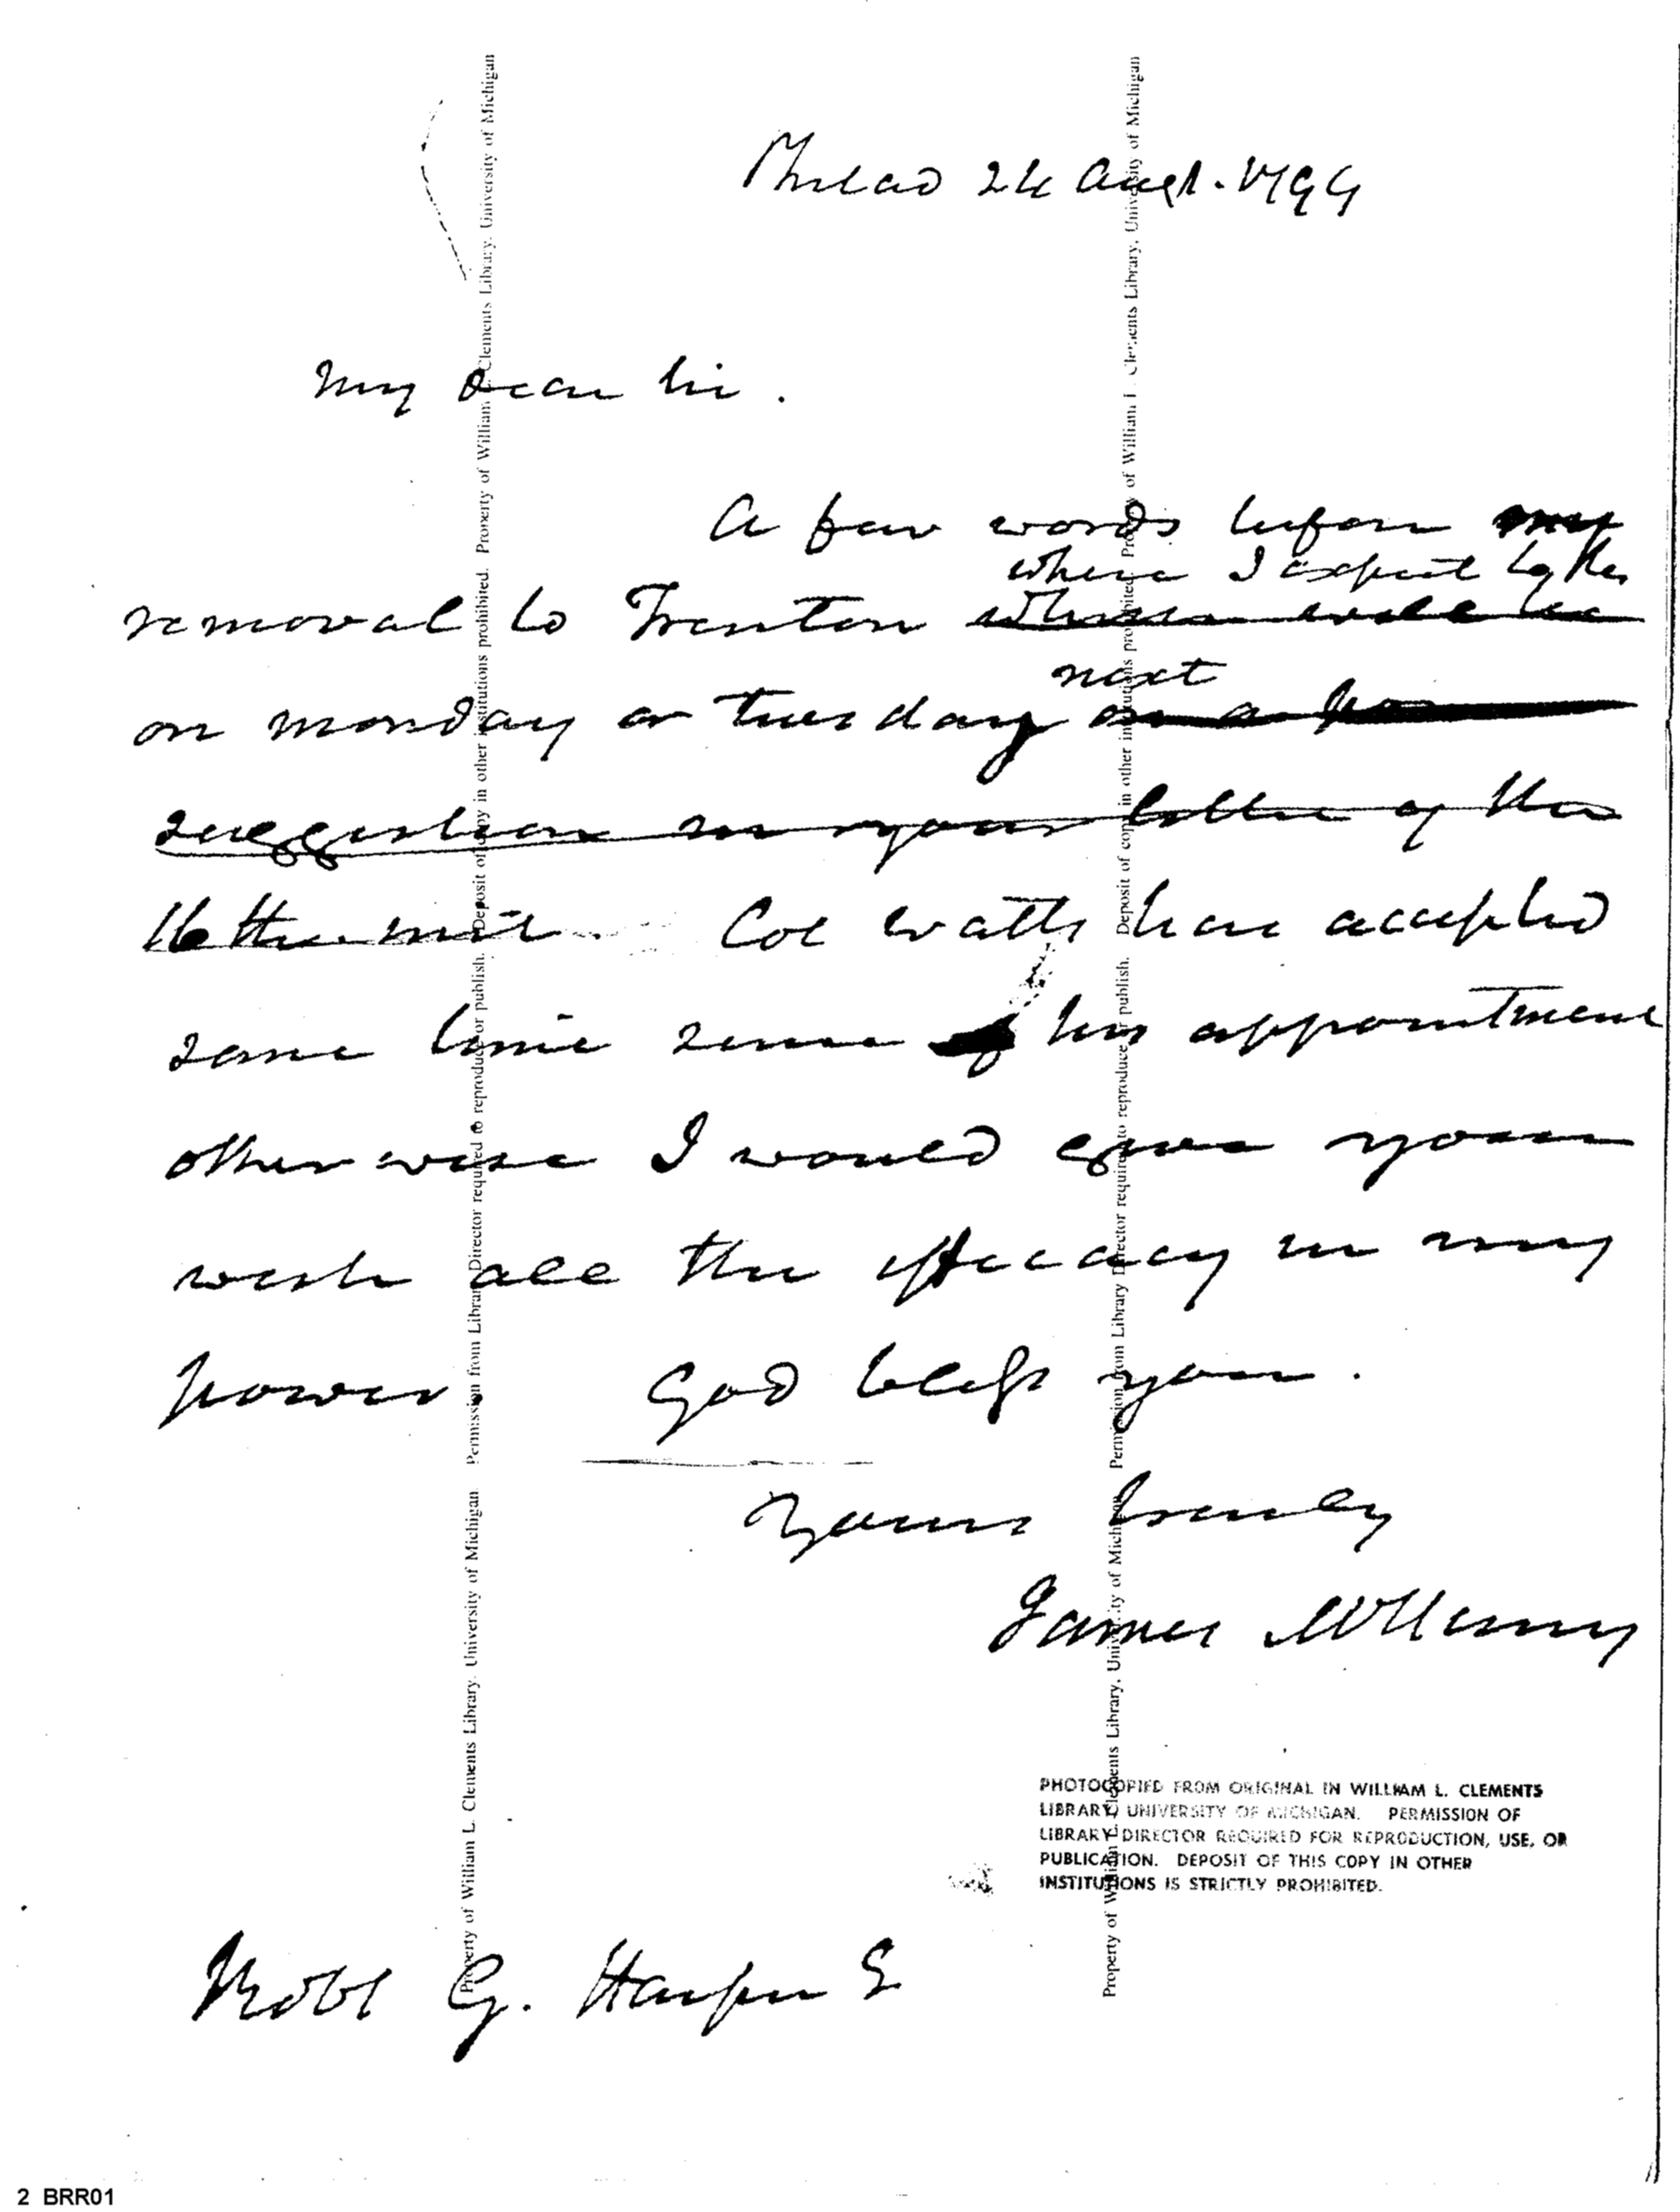 Philad 24 Augt. 1799
My dear Sir.
A few words before my
where I expect to be
removal to Trenton where will be
next
on monday or tuesday on a
suggestion in your letter of the
16th inst. Col Watts has accepted
some time since of his appointment
otherwise I would give your
wish all the efficacy in my
power. God bless you.
Yours truly
James McHenry
PHOTOCOPIED FROM ORIGINAL IN WILLIAM L. CLEMENTS
LIBRARY, UNIVERSITY OF MICHIGAN. PERMISSION OF
LIBRARY DIRECTOR REQUIRED FOR REPRODUCTION, USE, OR
PUBLICATION. DEPOSIT OF THIS COPY IN OTHER
INSTITUTIONS IS STRICTLY PROHIBITED.
Robt G. Harper E
2 BRR01
Property of William L. Clements Library, University of Michigan Permission from Library Director required to reproduce or publish. Deposit of copy in other institutions prohibited. Property of William L. Clements Library, University of Michigan
Property of William L. Clements Library, University of Michigan Permission from Library Director required to reproduce or publish. Deposit of copy in other institutions prohibited. Property of William L. Clements Library, University of Michigan